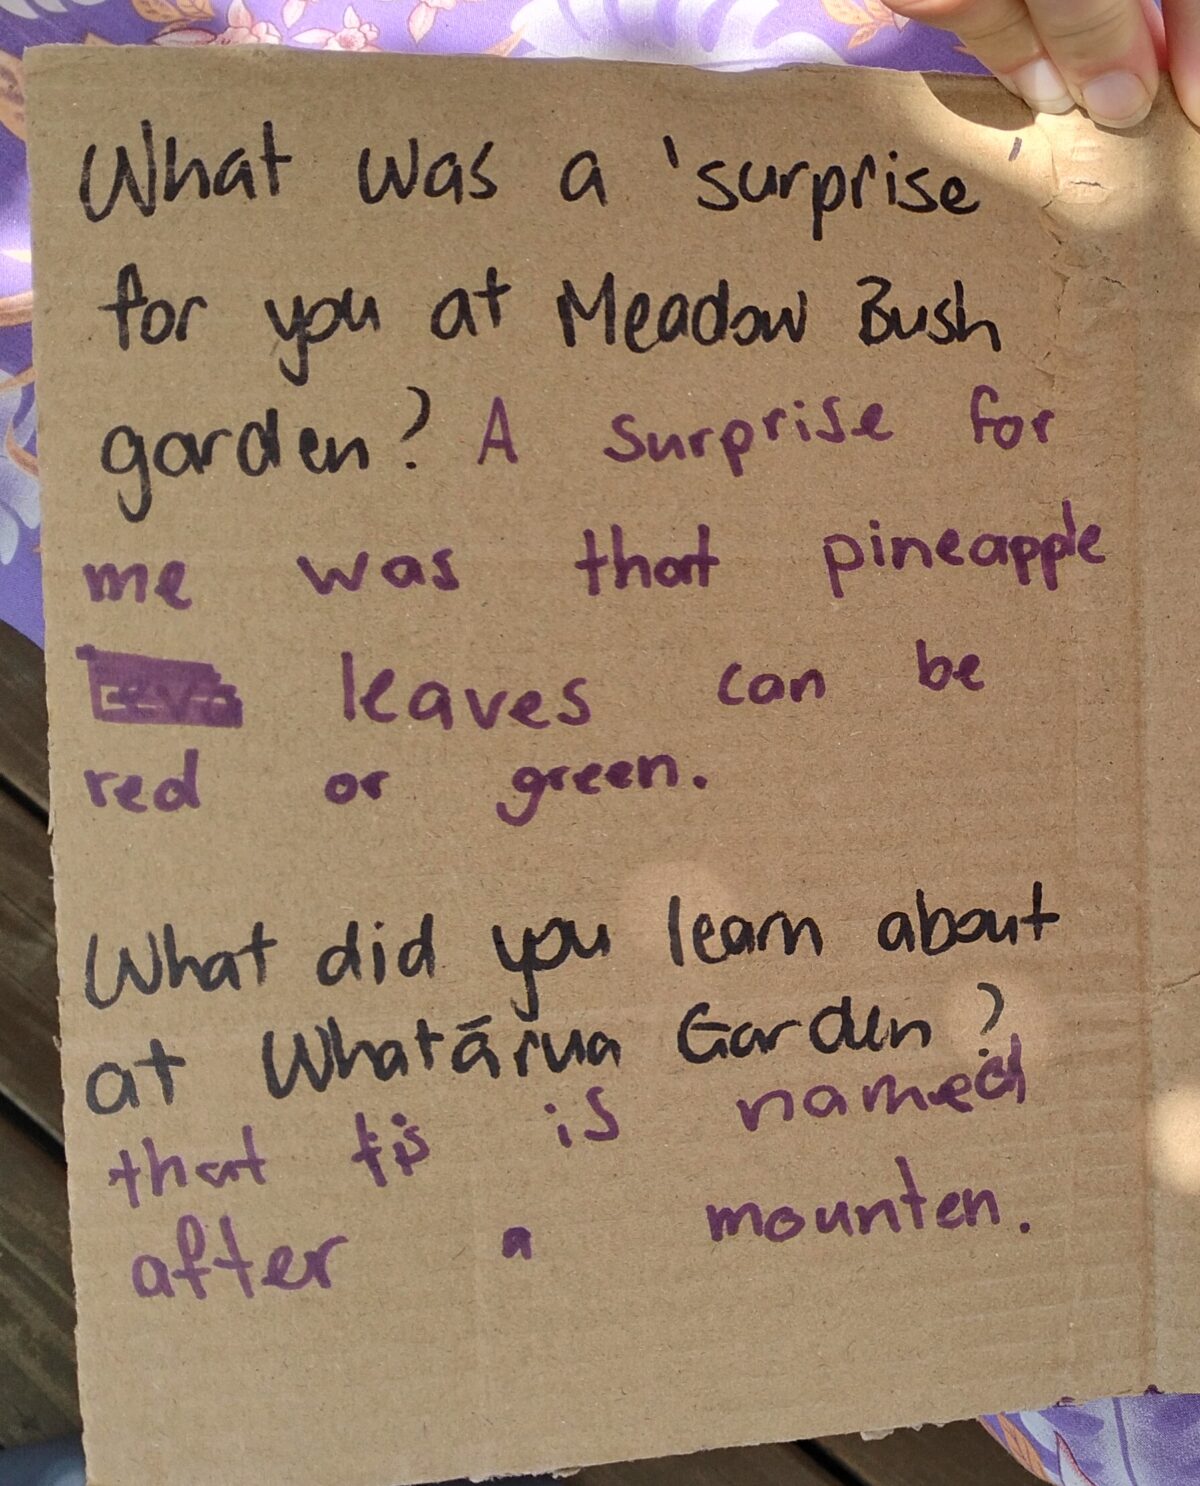 What was a 'surprise'
for you at Meadow Bush
garden? A surprise for
me was that pineapple
leaves can be
red or green.
What did you learn about
at Whatārua Garden?
that is is named
after a mounten.